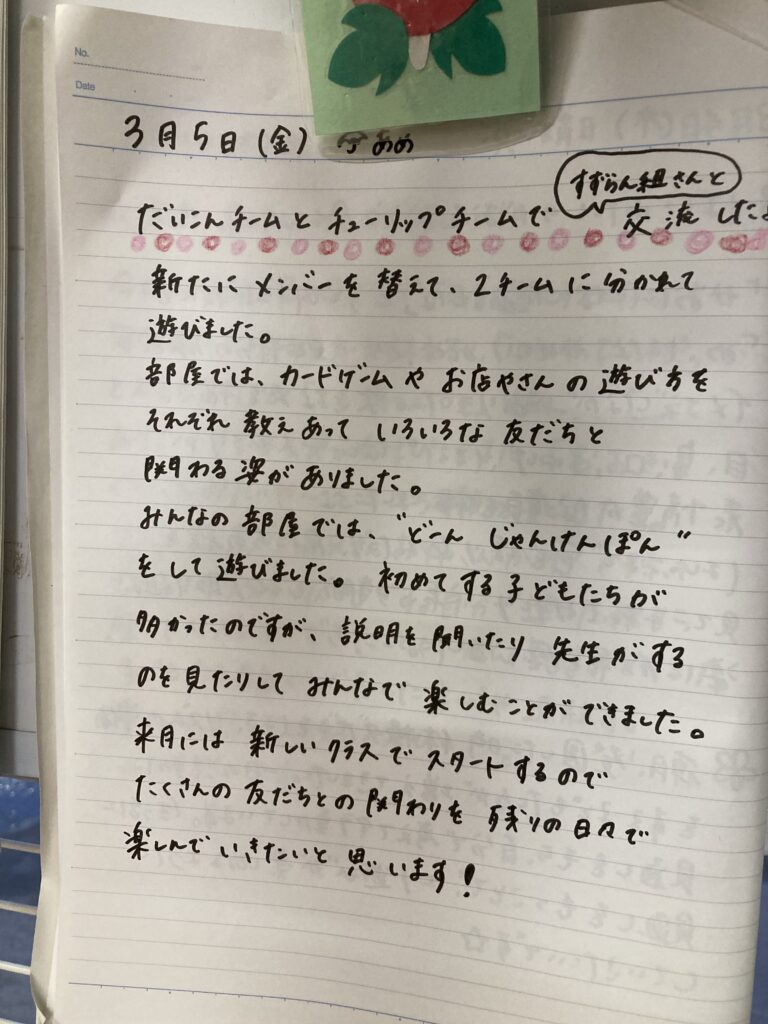 No.
Date
3月5日(金) あめ
すずらん組さんと
だいこんチームとチューリップチームで 交流したよ
新たにメンバーを替えて、2チームに分かれて
遊びました。
部屋では、カードゲームや お店やさんの遊び方を
それぞれ教えあって いろいろな友だちと
関わる姿がありました。
みんなの部屋では、"どーん じゃんけんぽん"
をして遊びました。初めてする子どもたちが
多かったのですが、説明を聞いたり 先生がする
のを見たりして みんなで楽しむことができました。
来月には 新しいクラスでスタートするので
たくさんの友だちとの関わりを 残りの日々で
楽しんでいきたいと思います!